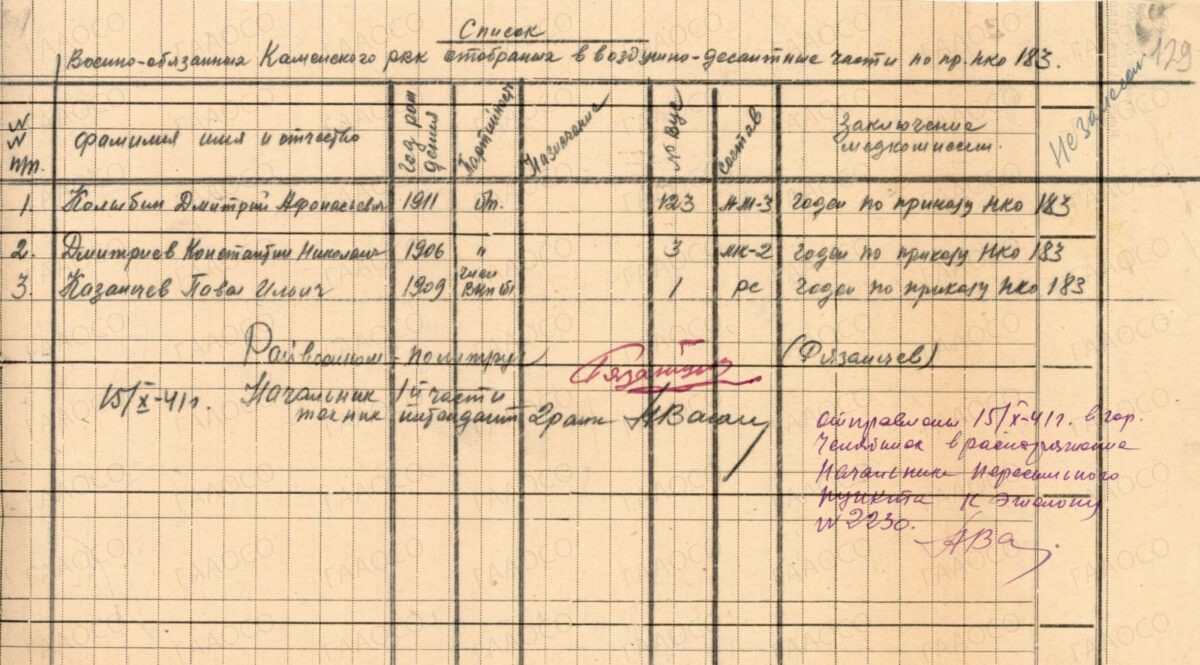 129
Список
Военно-обязанных Каменского рвк отобранных в воздушно-десантные части по пр. нко 183.
№№ п/п. фамилия имя и отчество год рождения Партийность Назначение № Вус состав Заключение медкомиссии.
1. Дмитрий Афанасьевич 1911 бп. 123 годен по приказу нко 183
2. Дмитриев Константин Николаевич 1906 " 3 мк-2 годен по приказу нко 183
3. Казанчев Павел Ильич 1909 член Вкп(б) 1 рс годен по приказу нко 183
Райвоенком - политрук (Рязанцев)
15/X-41г. Начальник 1й части
техник интендант 2 ранга
отправлены 15/X-41г. в гор.
Челябинск в распоряжение
Начальника Пересыльного
пункта к эшелону
№ 2230.
ГААОСО